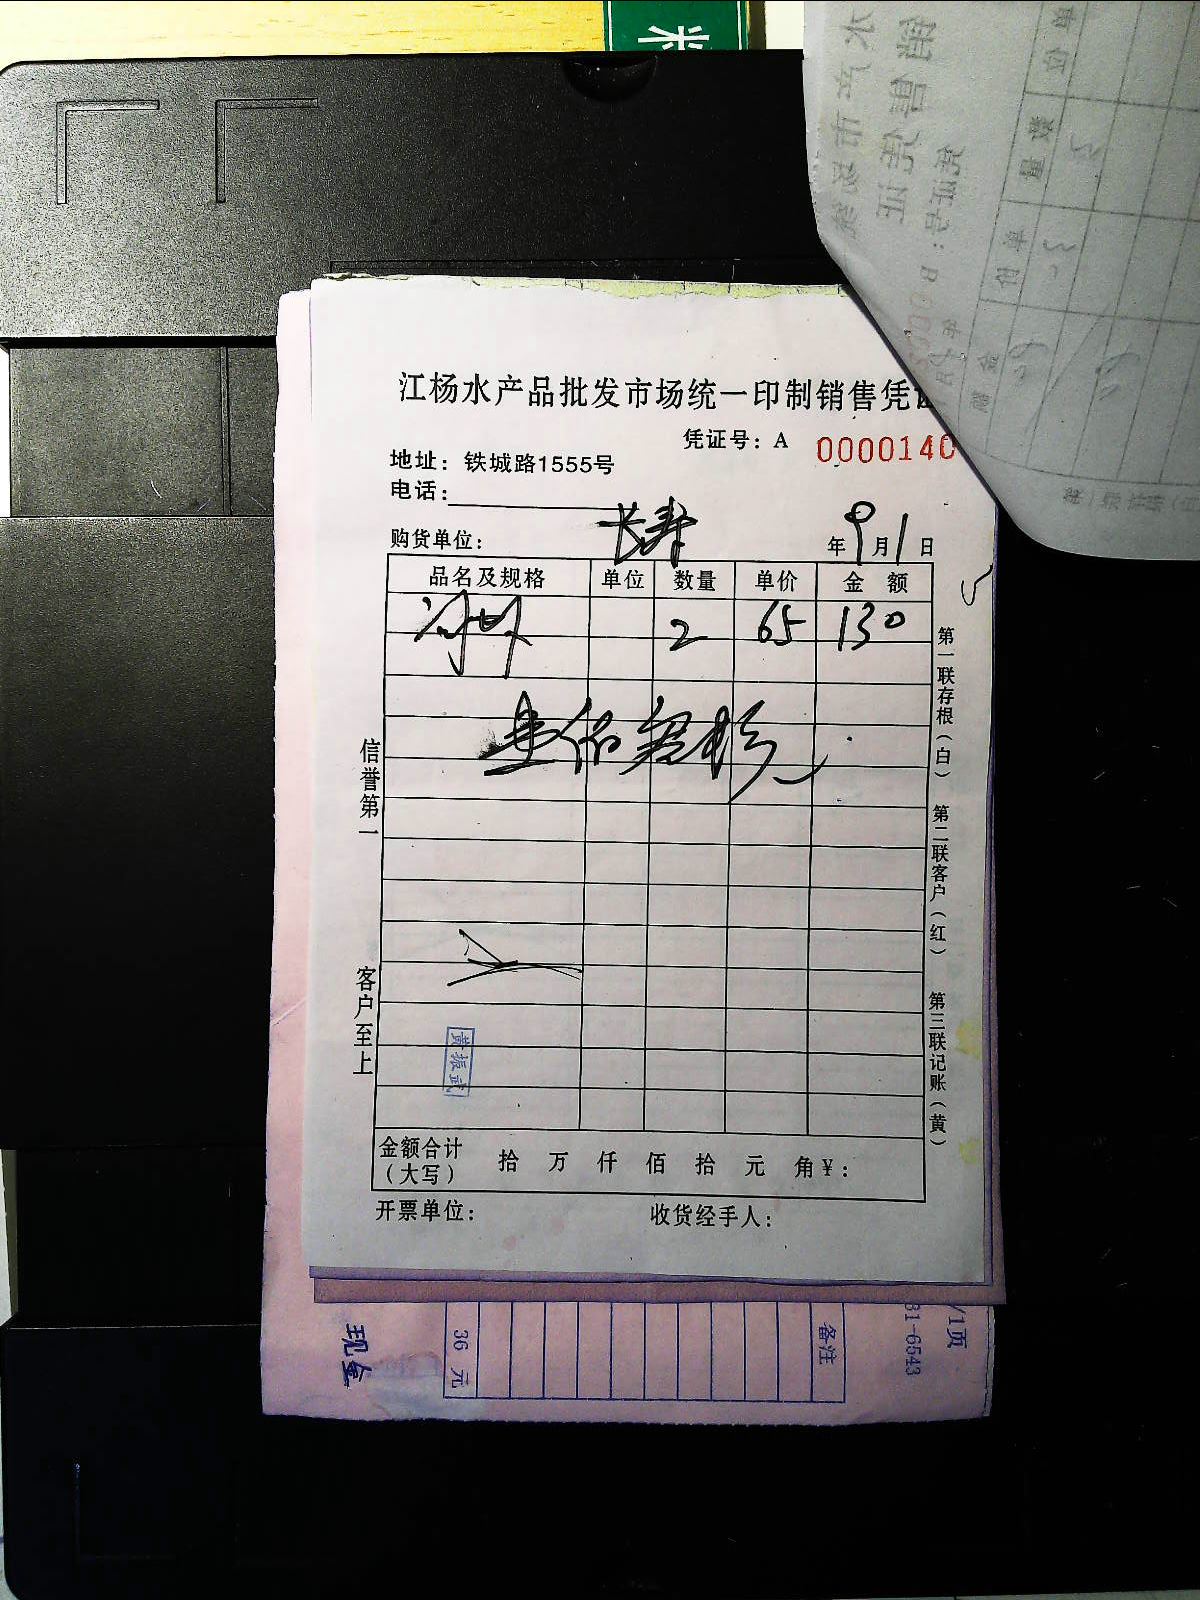 米
江杨水产品批发市场统一印制销售凭证
凭证号：A 0000140
地址：铁城路1555号
电话：
购货单位： 长寿 年 9 月 1 日
品名及规格 单位 数量 单价 金 额
2 65 130
壹佰叁拾
信誉第一
客户至上
第一联存根（白）
第二联客户（红）
第三联记账（黄）
黄振武
金额合计
（大写） 拾 万 仟 佰 拾 元 角 ¥：
开票单位： 收货经手人：
现金
36 元
备注
31-6543
/1页
销售凭证
凭证号：
数量
单价
金额